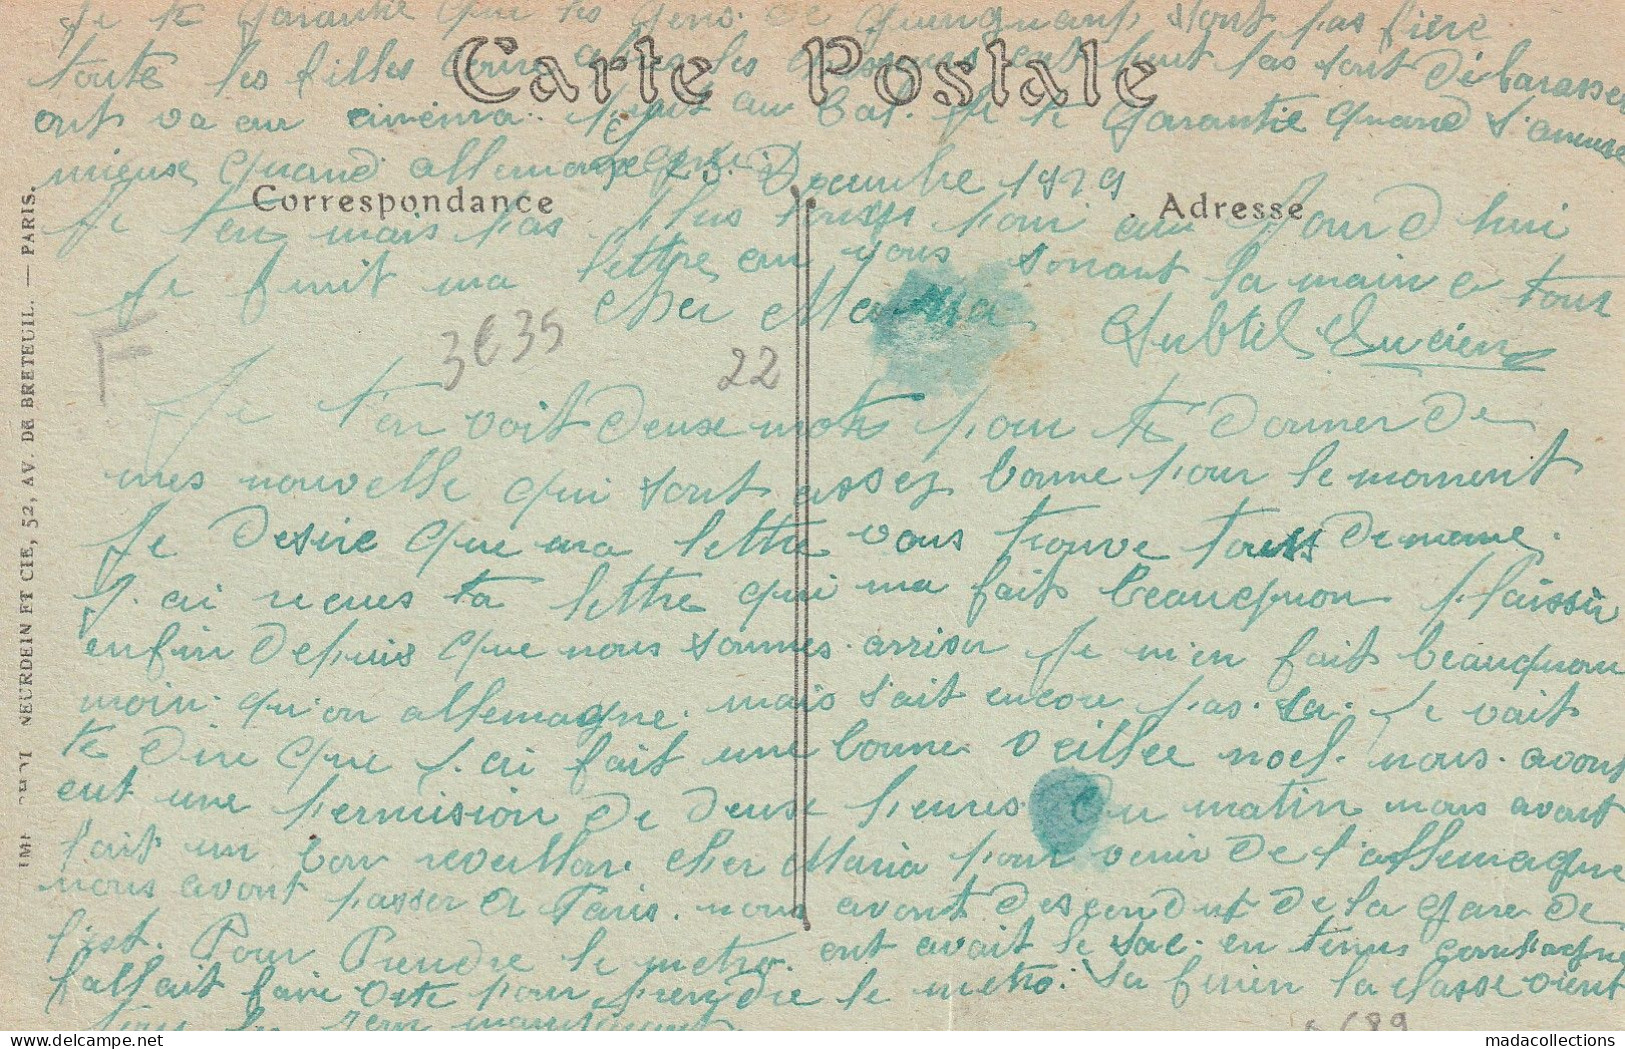 Je te garantie que les gens de Guingamp sont pas fière
toute les filles cour apres les ont peut pas sont débarasser
ont va au cinema tout au bal. Je te garantie quand s'amuse
mieux quand allemagne
Carte Postale
le 25 Decembre 1929
Correspondance
Adresse
Je fen mais pas plus pour au Jour d hui
Je finit ma lettre en vous sonant la main a tour
cher Maria
Lucien
F
3€35
22
Je t'en voit deux mots pour te donner de
mes nouvelle qui sont assez bonne pour le moment
Je desire que ma lettre vous trouve touss de meme.
J. ai recues ta lettre qui ma fait beauquou plaissir
enfin depuis que nous sommes arriser Je m'en fait beauquou
moin qu'on allemagne. mais s'ait encore pas sa. Je vait
te dire que J. ai fait une bonne veillee noel. nous avont
eut une permision de deuse heures du matin nous avont
fait un bon reveillon cher Maria pour venir de l'allemagne
nous avont passer a Paris. nous avont descendut de la gare de
l'est. Pour Prendre le metro. ont avait le sac en tenus
fallait faire vite pour prendre le metro. la classe vient
IMP NEURDEIN ET CIE, 52, AV. DE BRETEUIL. — PARIS.
madacollections